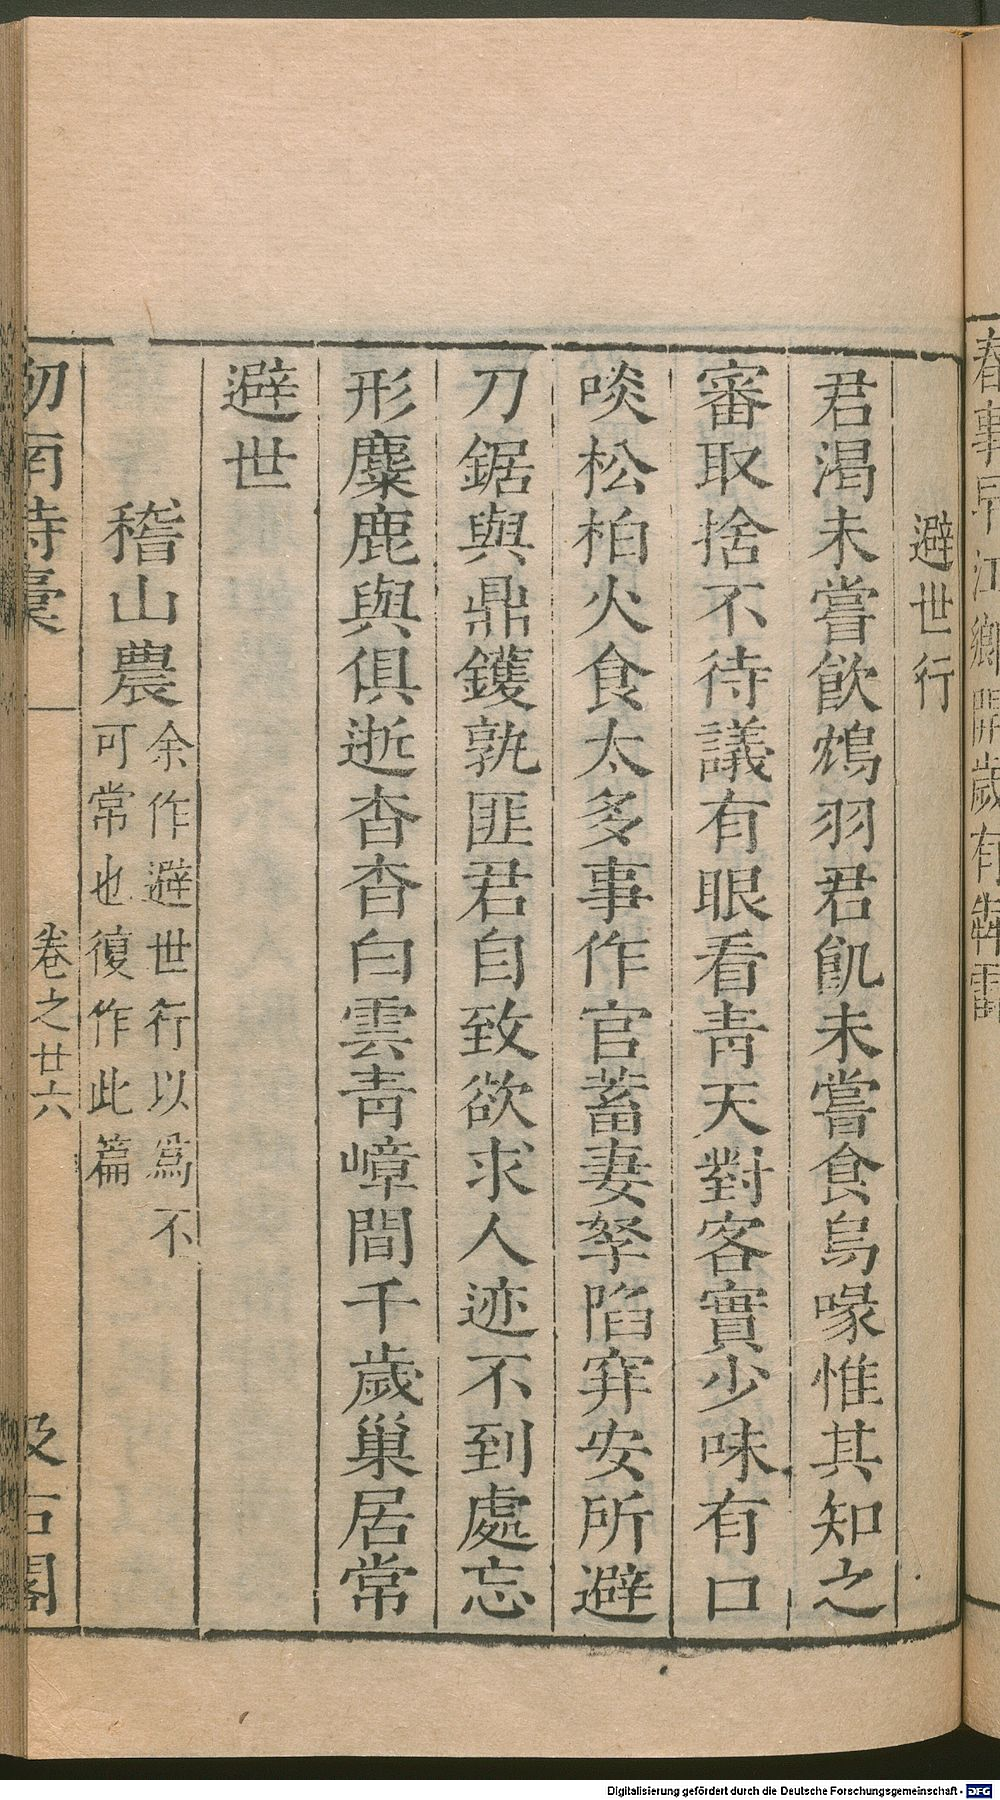 春事早江鄉開歲有犇雷
避世行
君渴未嘗飮鴆羽君飢未嘗食烏喙惟其知之
審取捨不待議有眼看靑天對客實少味有口
啖松柏火食太多事作官蓄妻孥陷穽安所避
刀鋸與鼎鑊孰匪君自致欲求人迹不到處忘
形麋鹿與俱逝杳杳白雲靑嶂間千歲巢居常
避世
稽山農
余作避世行以爲不
可常也復作此篇
劒南詩稾
卷之廿六
汲古閣
Digitalisierung gefördert durch die Deutsche Forschungsgemeinschaft - DFG